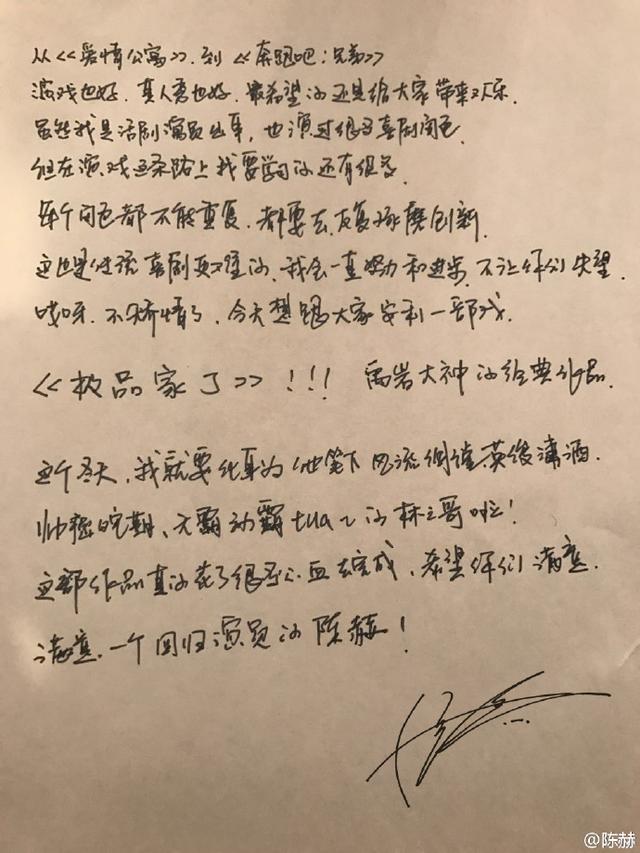 从<<爱情公寓>>.到<<奔跑吧:兄弟>>
游戏也好.真人秀也好.最希望的还是给大家带来欢乐.
虽然我是话剧演员出身,也演过很多喜剧角色.
但在演戏这条路上我要学习的还有很多.
每个角色都不能重复.都要去反复琢磨创新.
这也是传统喜剧更难的.我会一直努力和进步.不让你们失望.
哎呀.不矫情了,今天想跟大家安利一部戏.
<<极品家丁>>!!! 禹岩大神的经典作品.
这个冬天,我就要化身为他笔下风流倜傥.英俊潇洒.
帅 无霸动霸tua~的林三哥啦!
这部作品真的花了很多心血去完成,希望你们满意.
满意.一个回归演员的陈赫!
@陈赫